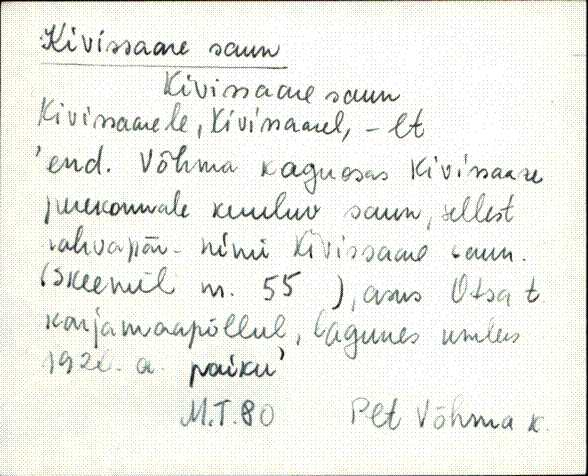 Kivissaare saun
Kivissaare saun
Kivissaarele, Kivissaarel, -lt
'end. Võhma kaguosas Kivissaare
perekonnale kuuluv saun, sellest
rahvapär. nimi Kivissaare saun.
(Skeemil nr. 55 ), asus Otsa t
karjamaapõllul, lagunes umbes
192 . a. paiku'
M.T.80 Plt Võhma k.